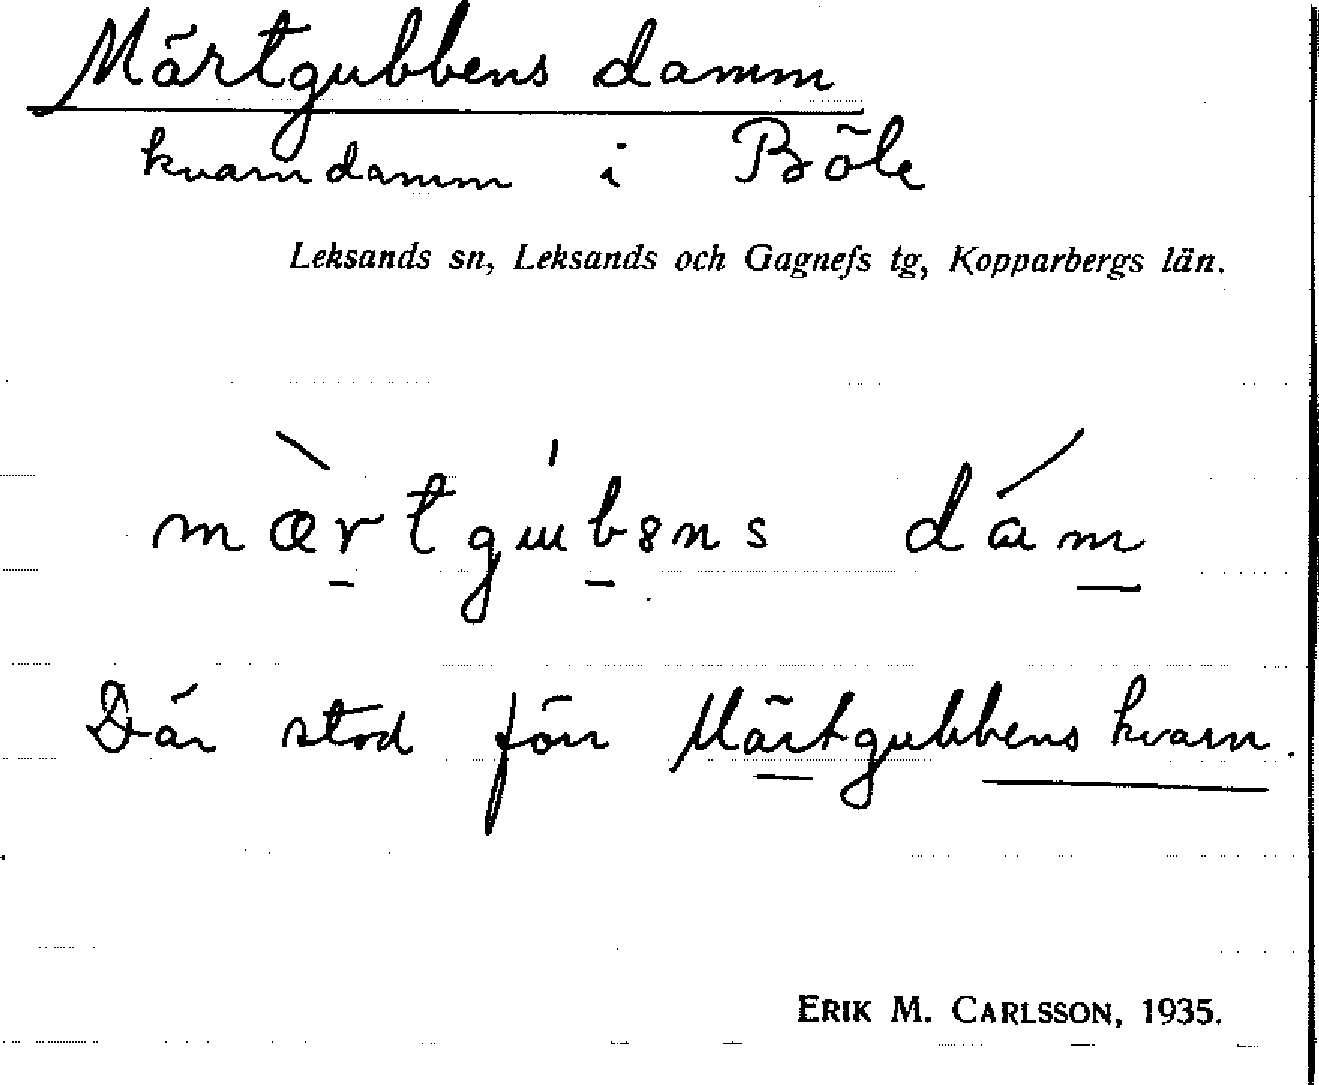 Märtgubbens damm
kvarndamm i Böle
Leksands sn, Leksands och Gagnefs tg, Kopparbergs län.
mærtgubens dam
Där stod förr Märtgubbens kvarn.
ERIK M. CARLSSON, 1935.